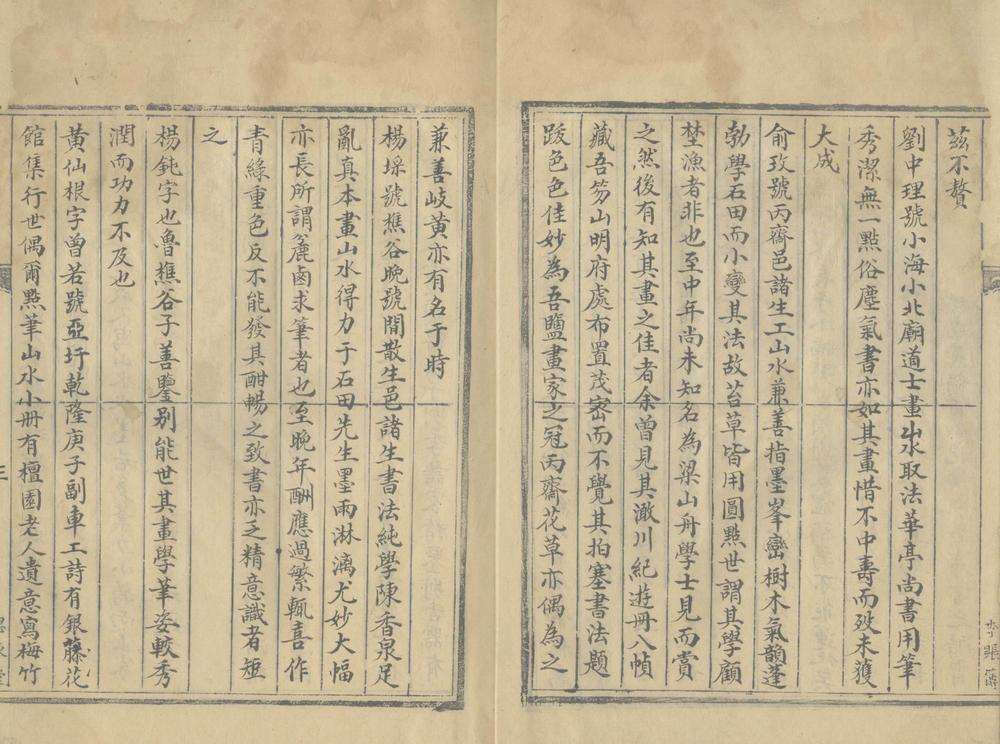 茲不贅
劉中理號小海小北廟道士畫山水取法華亭尚書用筆
秀潔無一點俗塵氣書亦如其畫惜不中壽而歿未獲
大成
俞玫號丙齋邑諸生工山水兼善指墨峯巒樹木氣韻蓬
勃學石田而小變其法故苔草皆用圓點世謂其學顧
埜漁者非也至中年尚未知名為梁山舟學士見而賞
之然後有知其畫之佳者余曾見其澉川紀遊冊八幀
藏吾笏山明府處布置茂宻而不覺其拍塞書法題
跋色色佳妙為吾鹽畫家之冠丙齋花草亦偶為之
兼善岐黃亦有名于時
楊埰號樵谷晚號閒散生邑諸生書法純學陳香泉足
亂真本畫山水得力于石田先生墨雨淋漓尤妙大幅
亦長所謂麄鹵求筆者也至晚年酬應過繁輒喜作
青綠重色反不能發其酣暢之致書亦乏精意識者短
之
楊鈍字也魯樵谷子善鑒別能世其畫學筆姿較秀
潤而功力不及也
黃仙根字曾若號亞圩乾隆庚子副車工詩有銀藤花
館集行世偶爾點筆山水小冊有檀園老人遺意寫梅竹